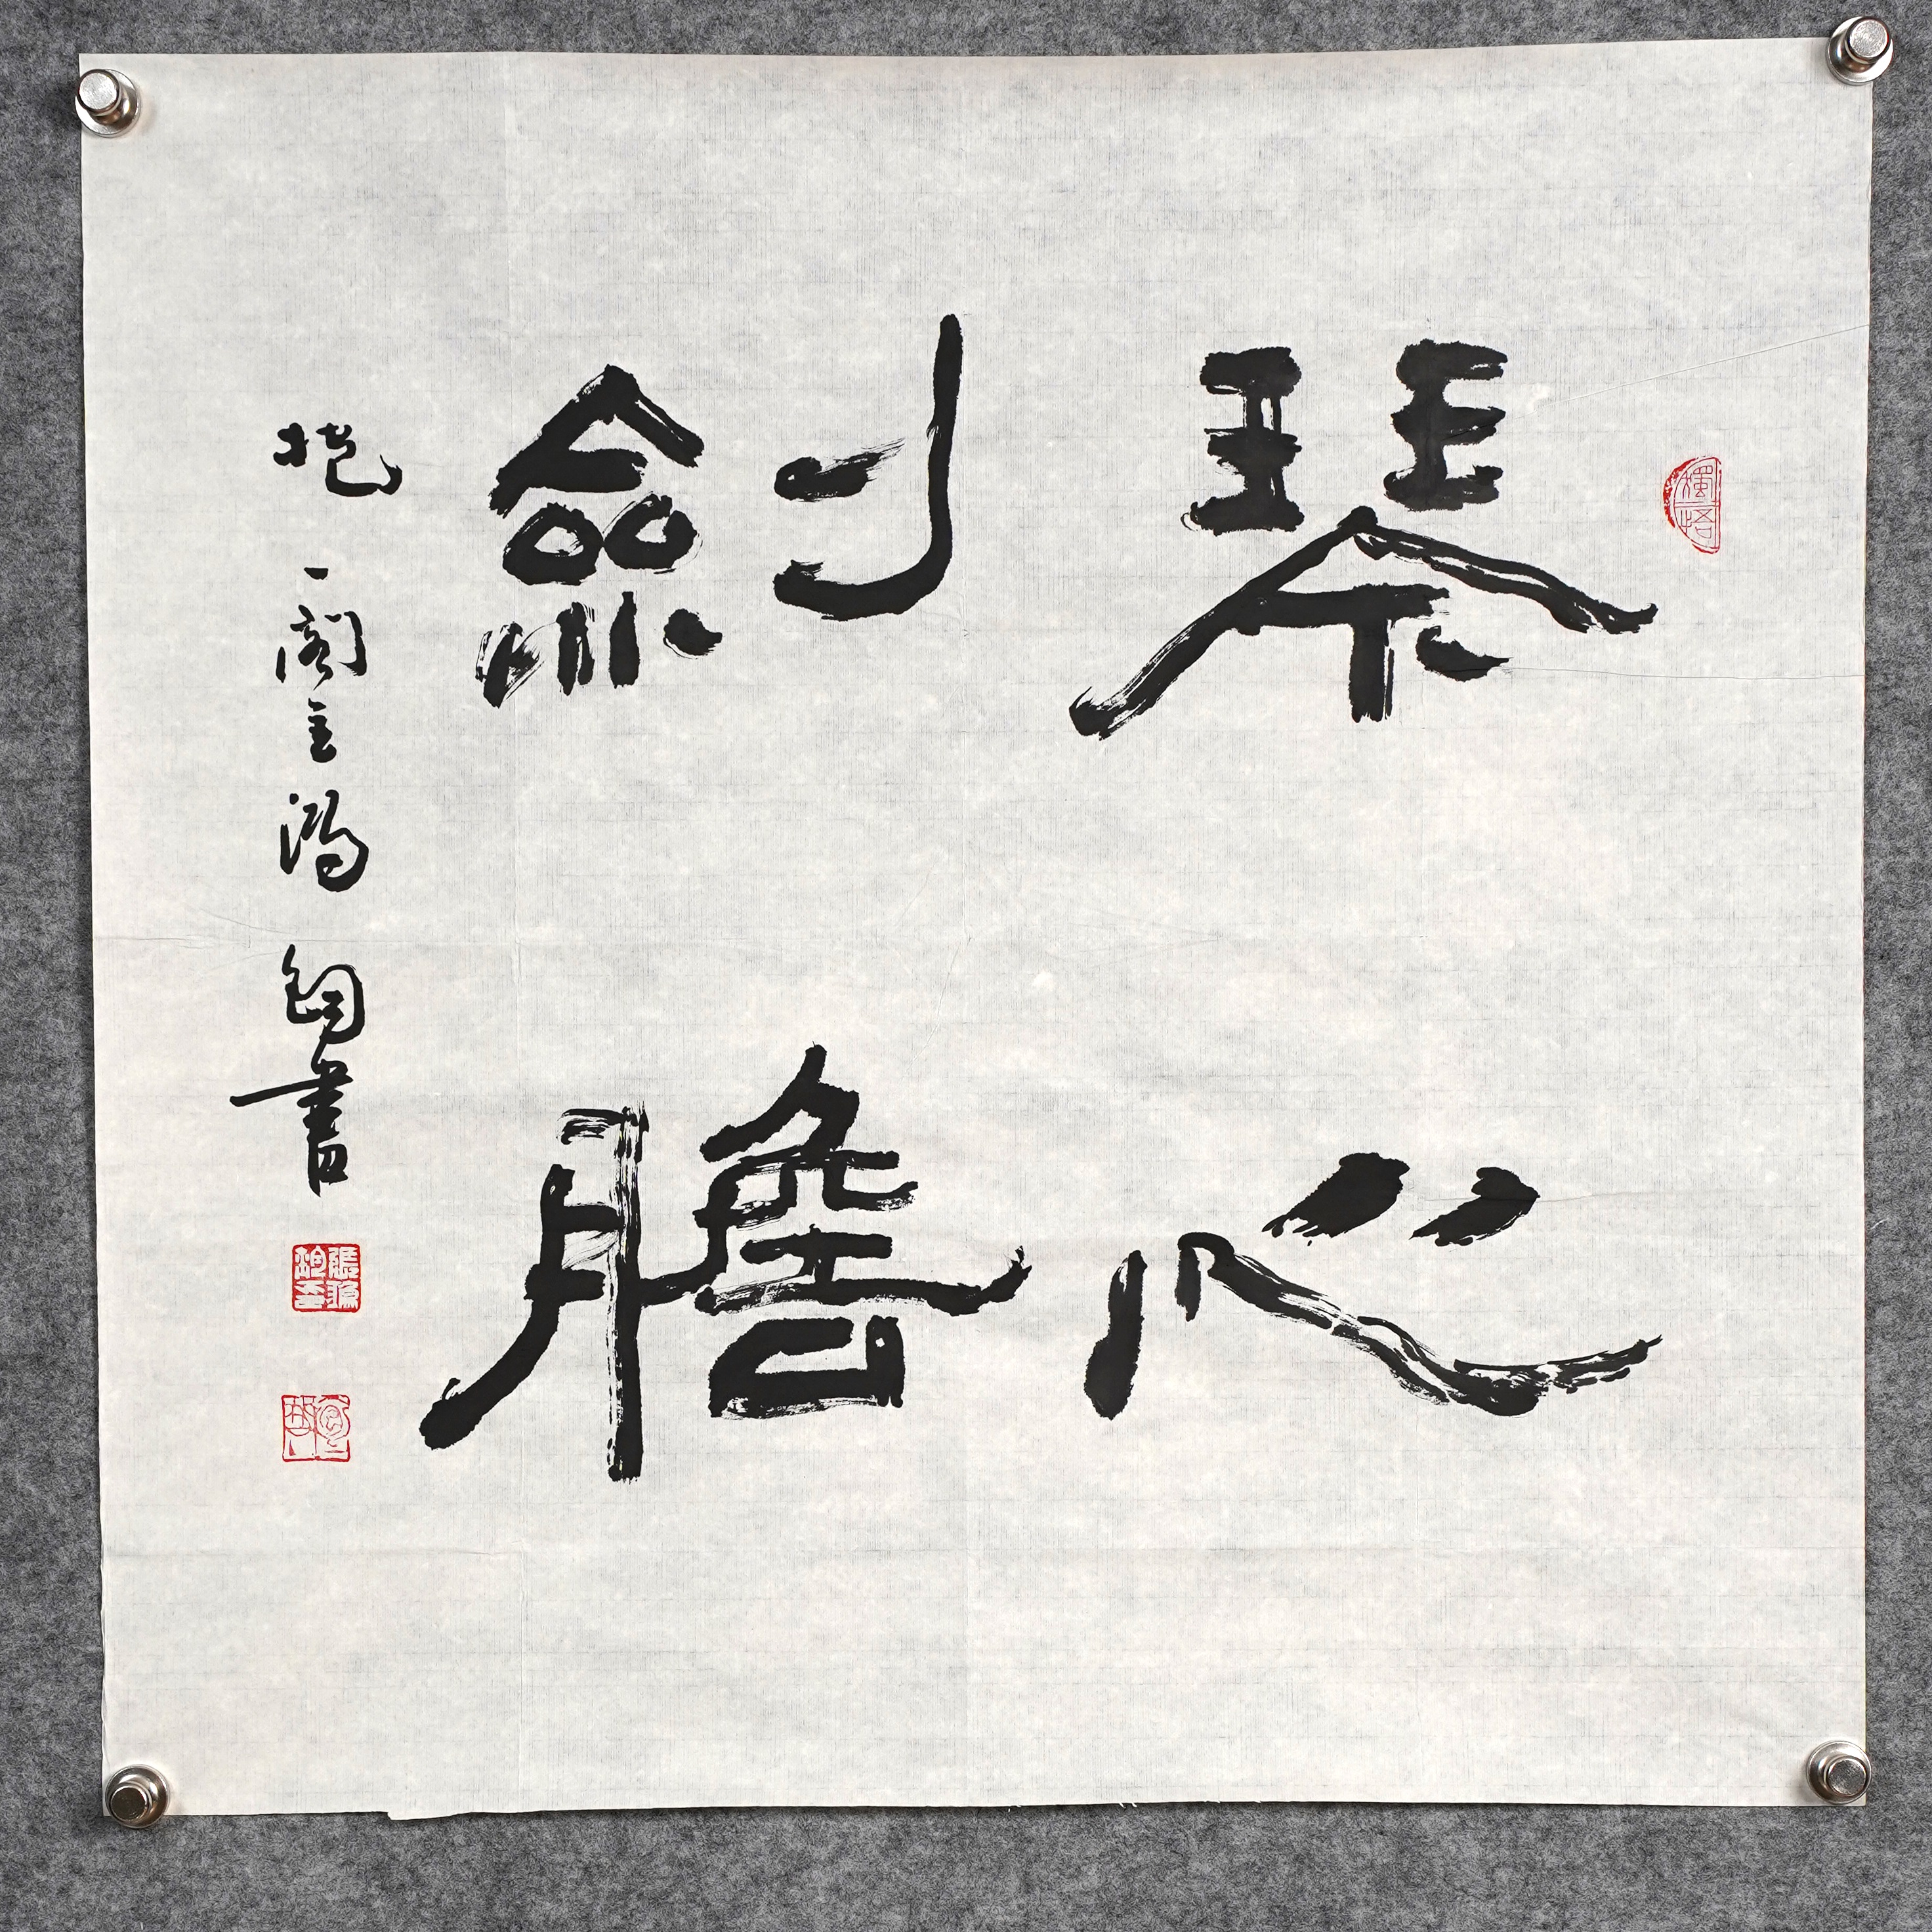 琴心
劍膽
抱一閣主書
獨悟